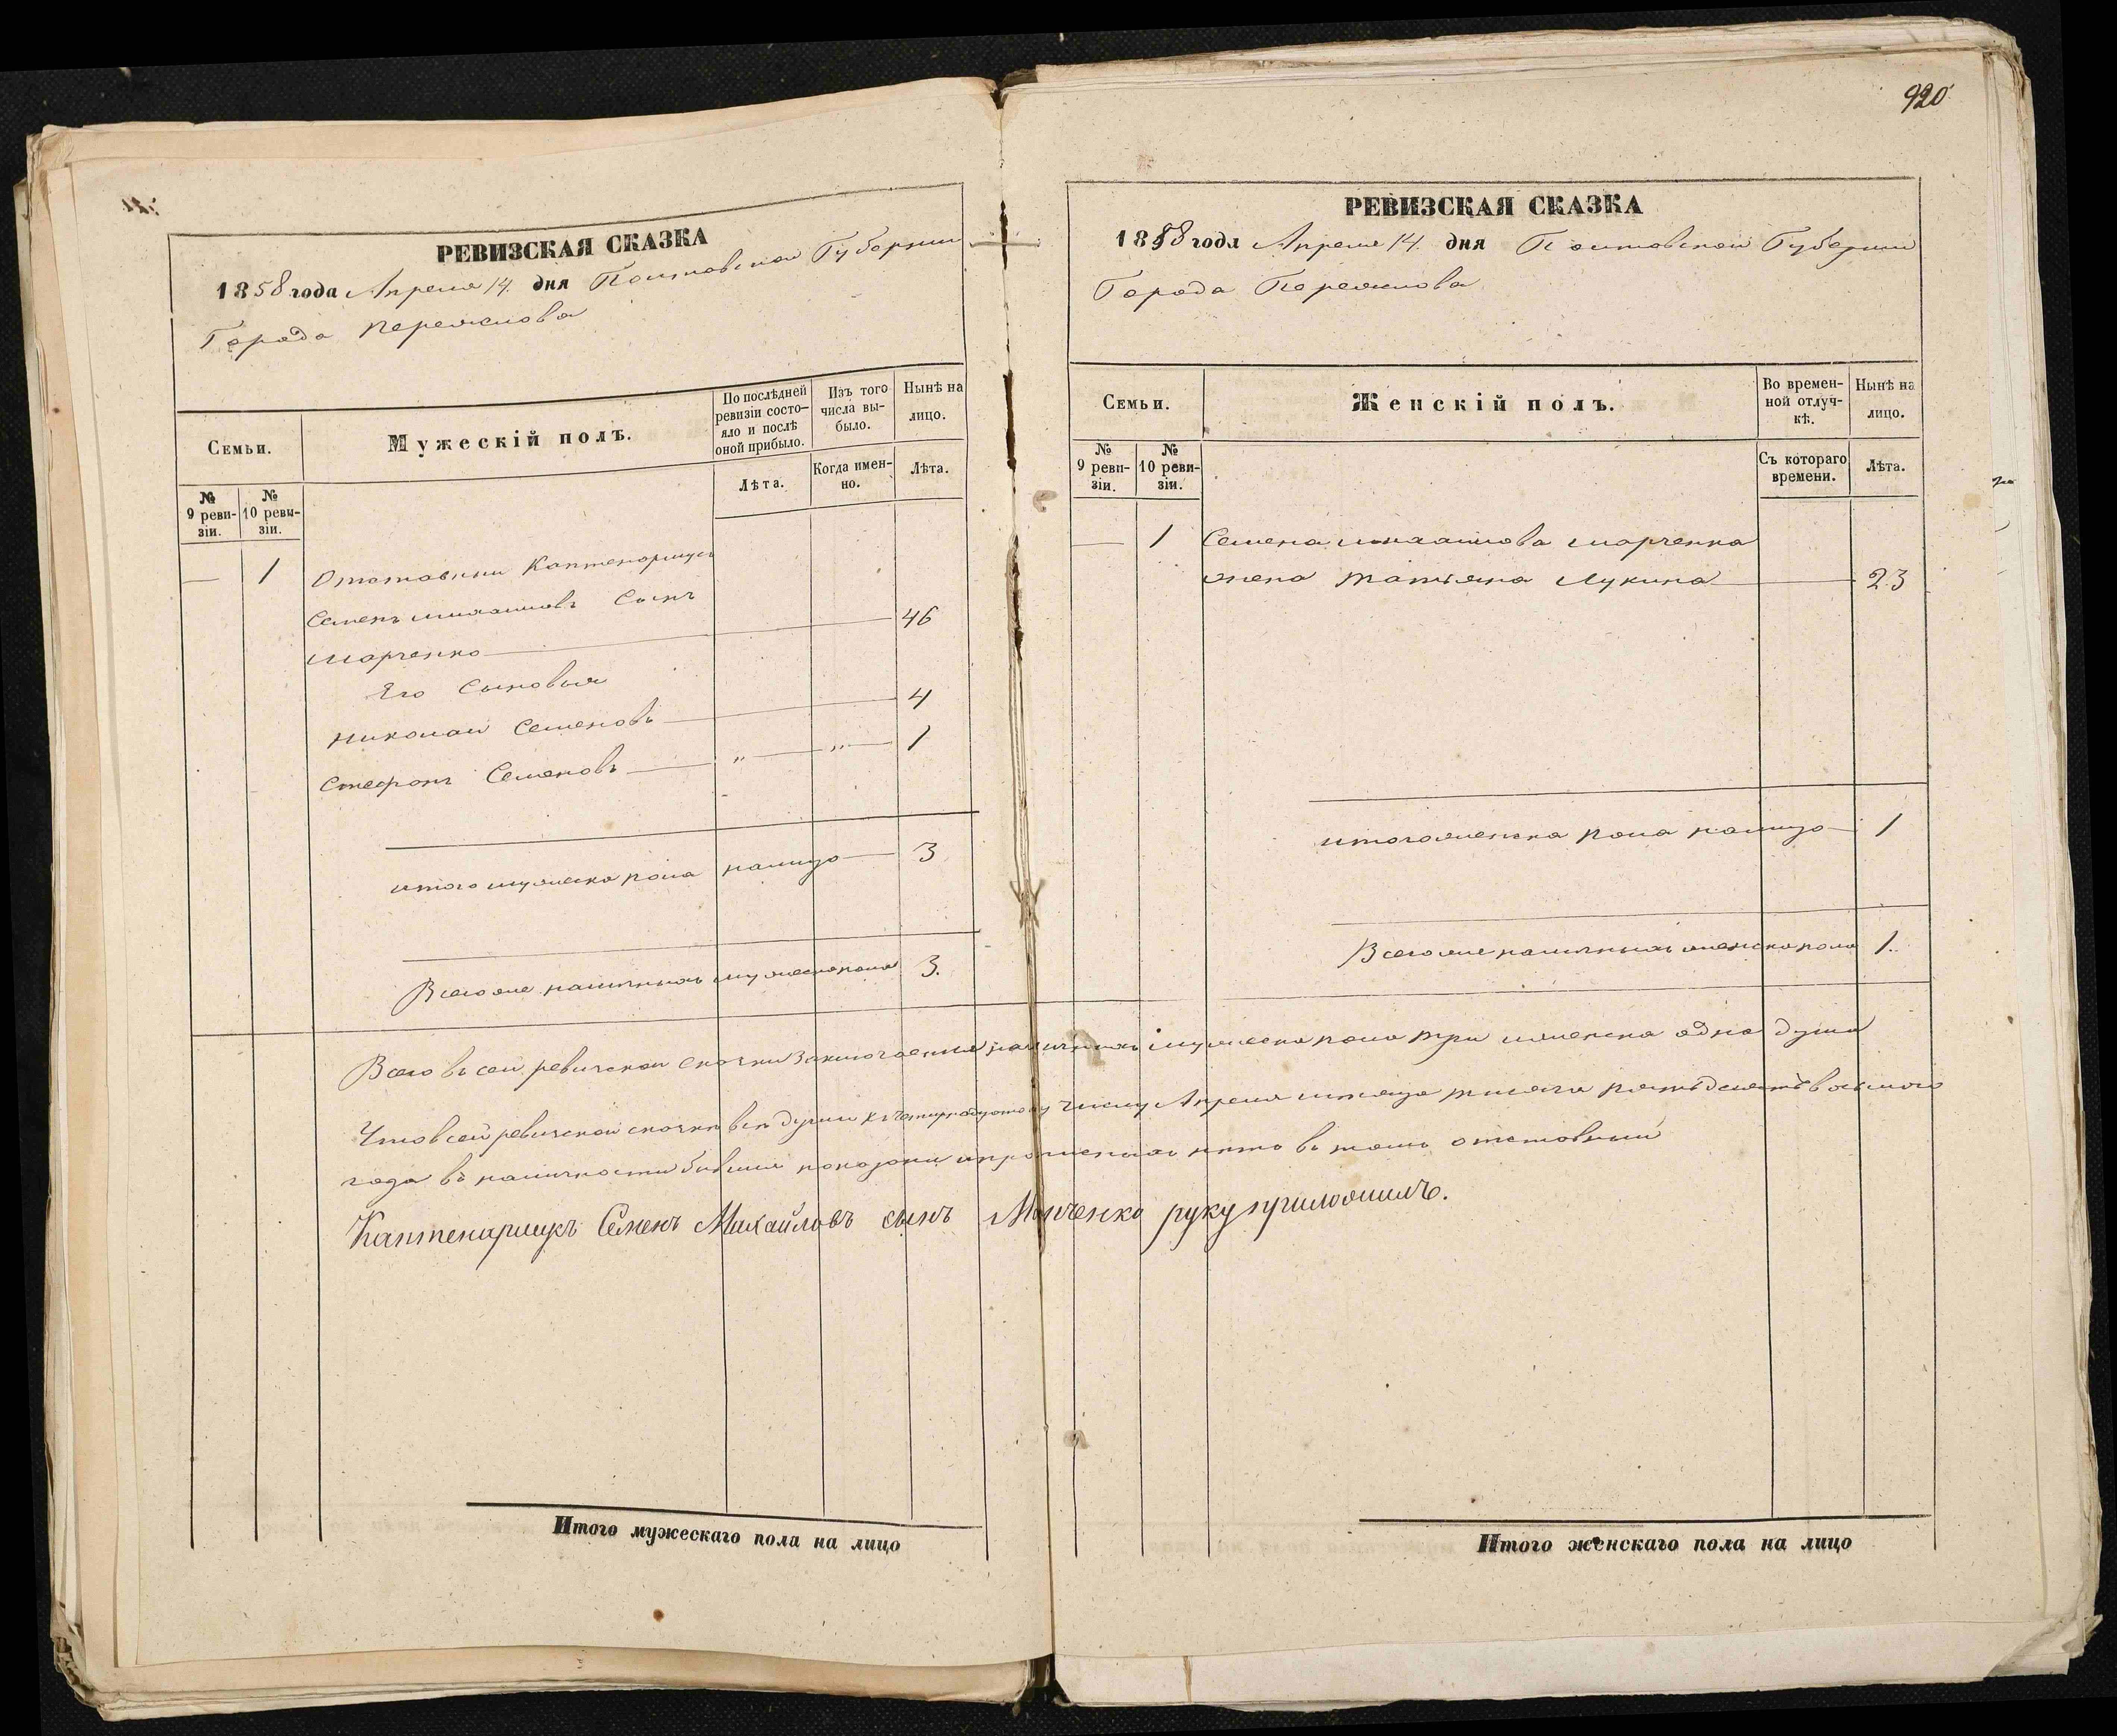 РЕВИЗСКАЯ СКАЗКА
1858 года Апреля 14. дня Полтовской Губернии
Города переяслова
Семьи.
Мужескій полъ.
По послѣдней ревизіи состо-
яло и послѣ
оной прибыло.
Изъ того
числа вы-
было.
Нынѣ на
лицо.
№
9 реви-
зіи.
№
10 реви-
зіи.
Лѣта.
Когда имен-
но.
Лѣта.
— 1 Отстовнии Коптенормусъ
Семенъ михаиловъ Сынъ 46
марченко
Его Сыновья
николаи Семеновъ 4
Стефонъ Семеновъ " " 1
итого мужеска пола налицо 3
Всегоже наличныхъ мужескапола 3.
920
РЕВИЗСКАЯ СКАЗКА
1858 года Апреля 14. дня Полтовской Губернии
Города Переяслова
Семьи.
Женскій полъ.
Во времен-
ной отлуч-
кѣ.
Нынѣ на
лицо.
№
9 реви-
зіи.
№
10 реви-
зіи.
Съ котораго
времени.
Лѣта.
— 1 Семена михаилова марченка
жена татьяна Лукина 23
итогоженска пола налицо 1
Всегоже наличныхъ женскапола 1.
Всего въ сеи ревизскои скозки заключаетца наличныхъ мужеска пола три иженска одна душа
Что всей ревизской скозкѣ всѣ души къ четырнадцатому числу Апреля месяца тысяча пятьдесятъ восьмого
года въ наличности бывшие показоны ипрописныхъ нѣтъ въ томъ отстовный
Каптенармусъ Семенъ Михайловъ сынъ Марченко руку приложилъ.
Итого мужескаго пола на лицо
Итого женскаго пола на лицо